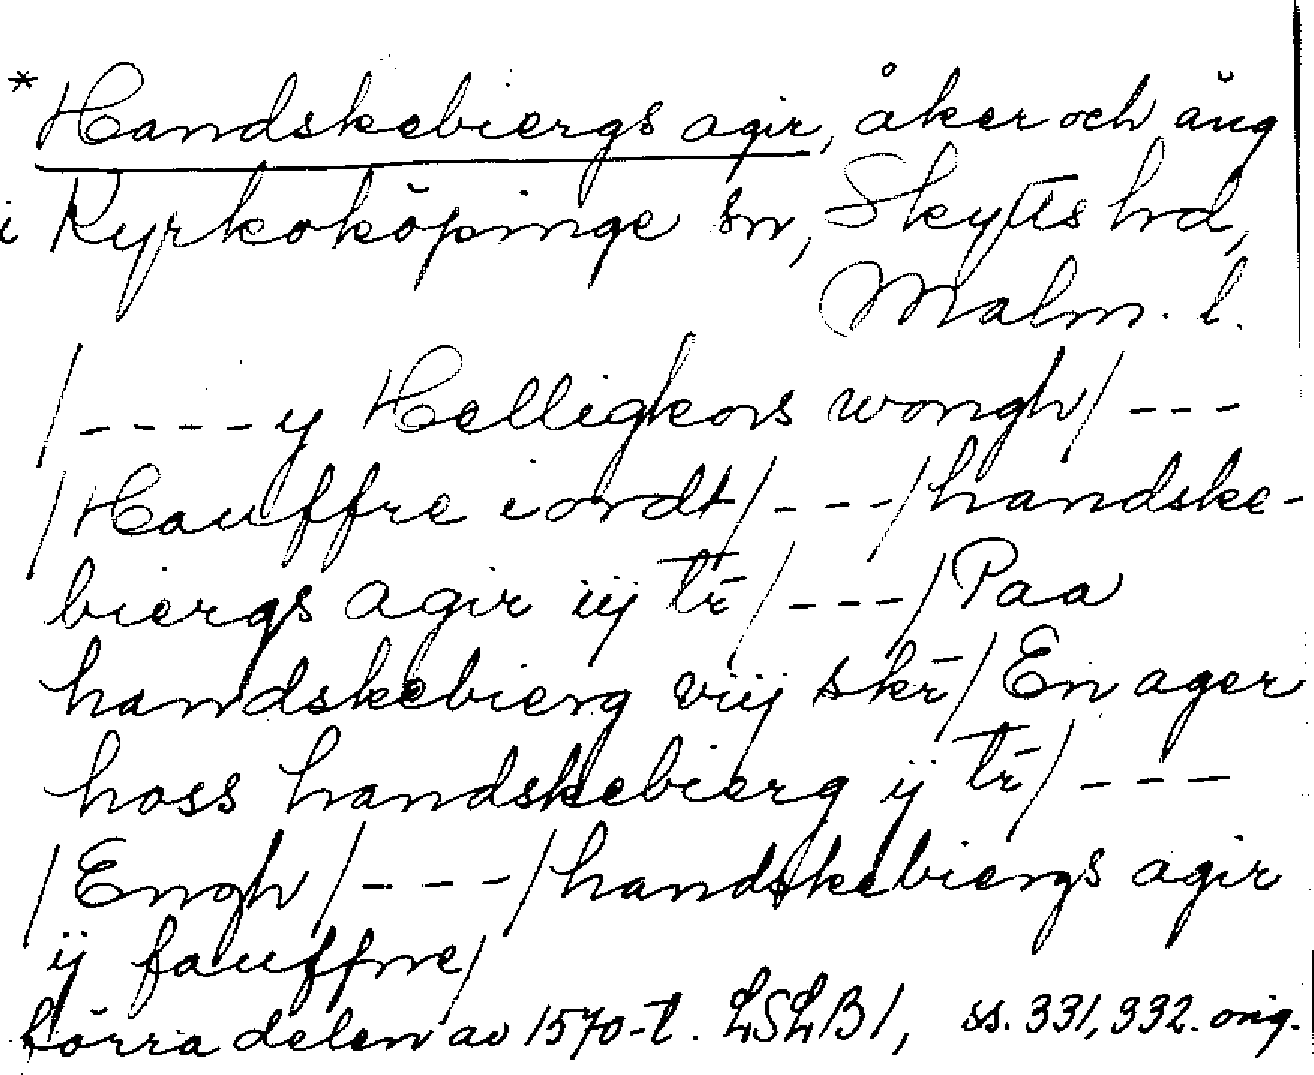 *Handskebiergs agir, åker och äng
i Kyrkoköpinge sn, Skytts hd,
Malm. l.
/----y Helligkors wongh/---
/Hauffre iordt/---/handske-
biergs agir iij tr̄/---/Paa
handskebierg viij skr̄/En ager
hoss handskebierg ij tr̄/---
/Engh/---/handskebiergs agir
ij fauffne/
förra delen av 1570-t. LSLB1, ss. 331, 332. orig.